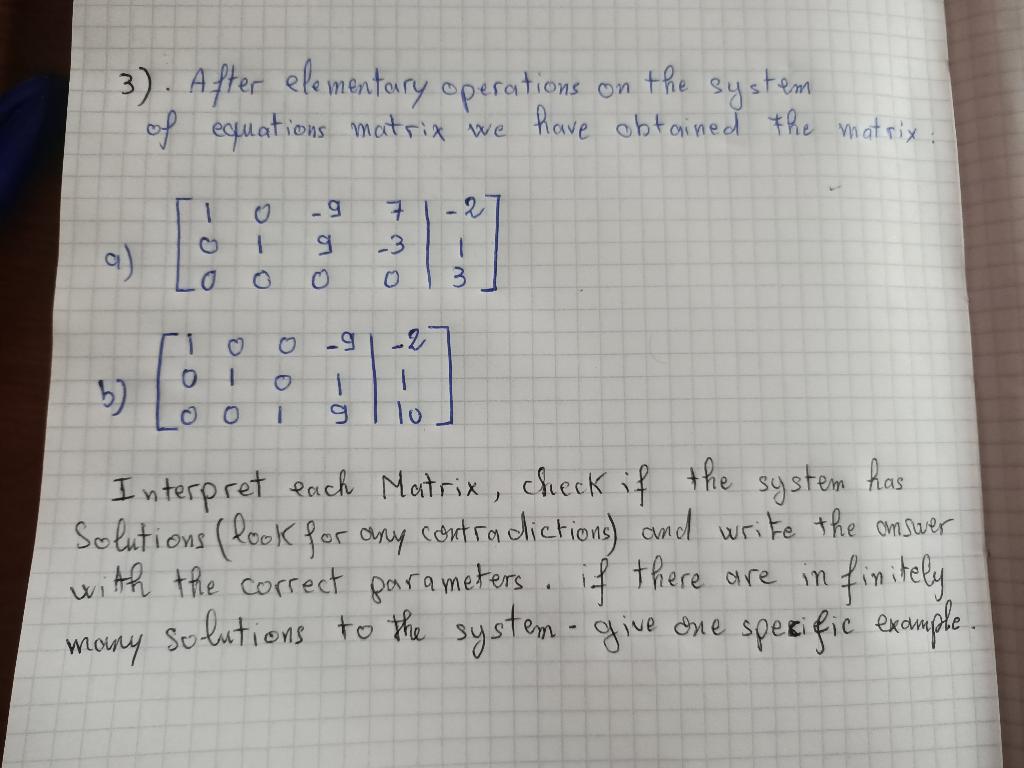 3). After elementary operations on the system
of equations matrix we have obtained the matrix:
a) [ 1 0 -9 7 | -2 ]
[ 0 1 9 -3 | 1 ]
[ 0 0 0 0 | 3 ]
b) [ 1 0 0 -9 | -2 ]
[ 0 1 0 1 | 1 ]
[ 0 0 1 9 | 10 ]
Interpret each Matrix, check if the system has
Solutions (look for any contradictions) and write the answer
with the correct parameters. if there are infinitely
many solutions to the system - give one specific example.